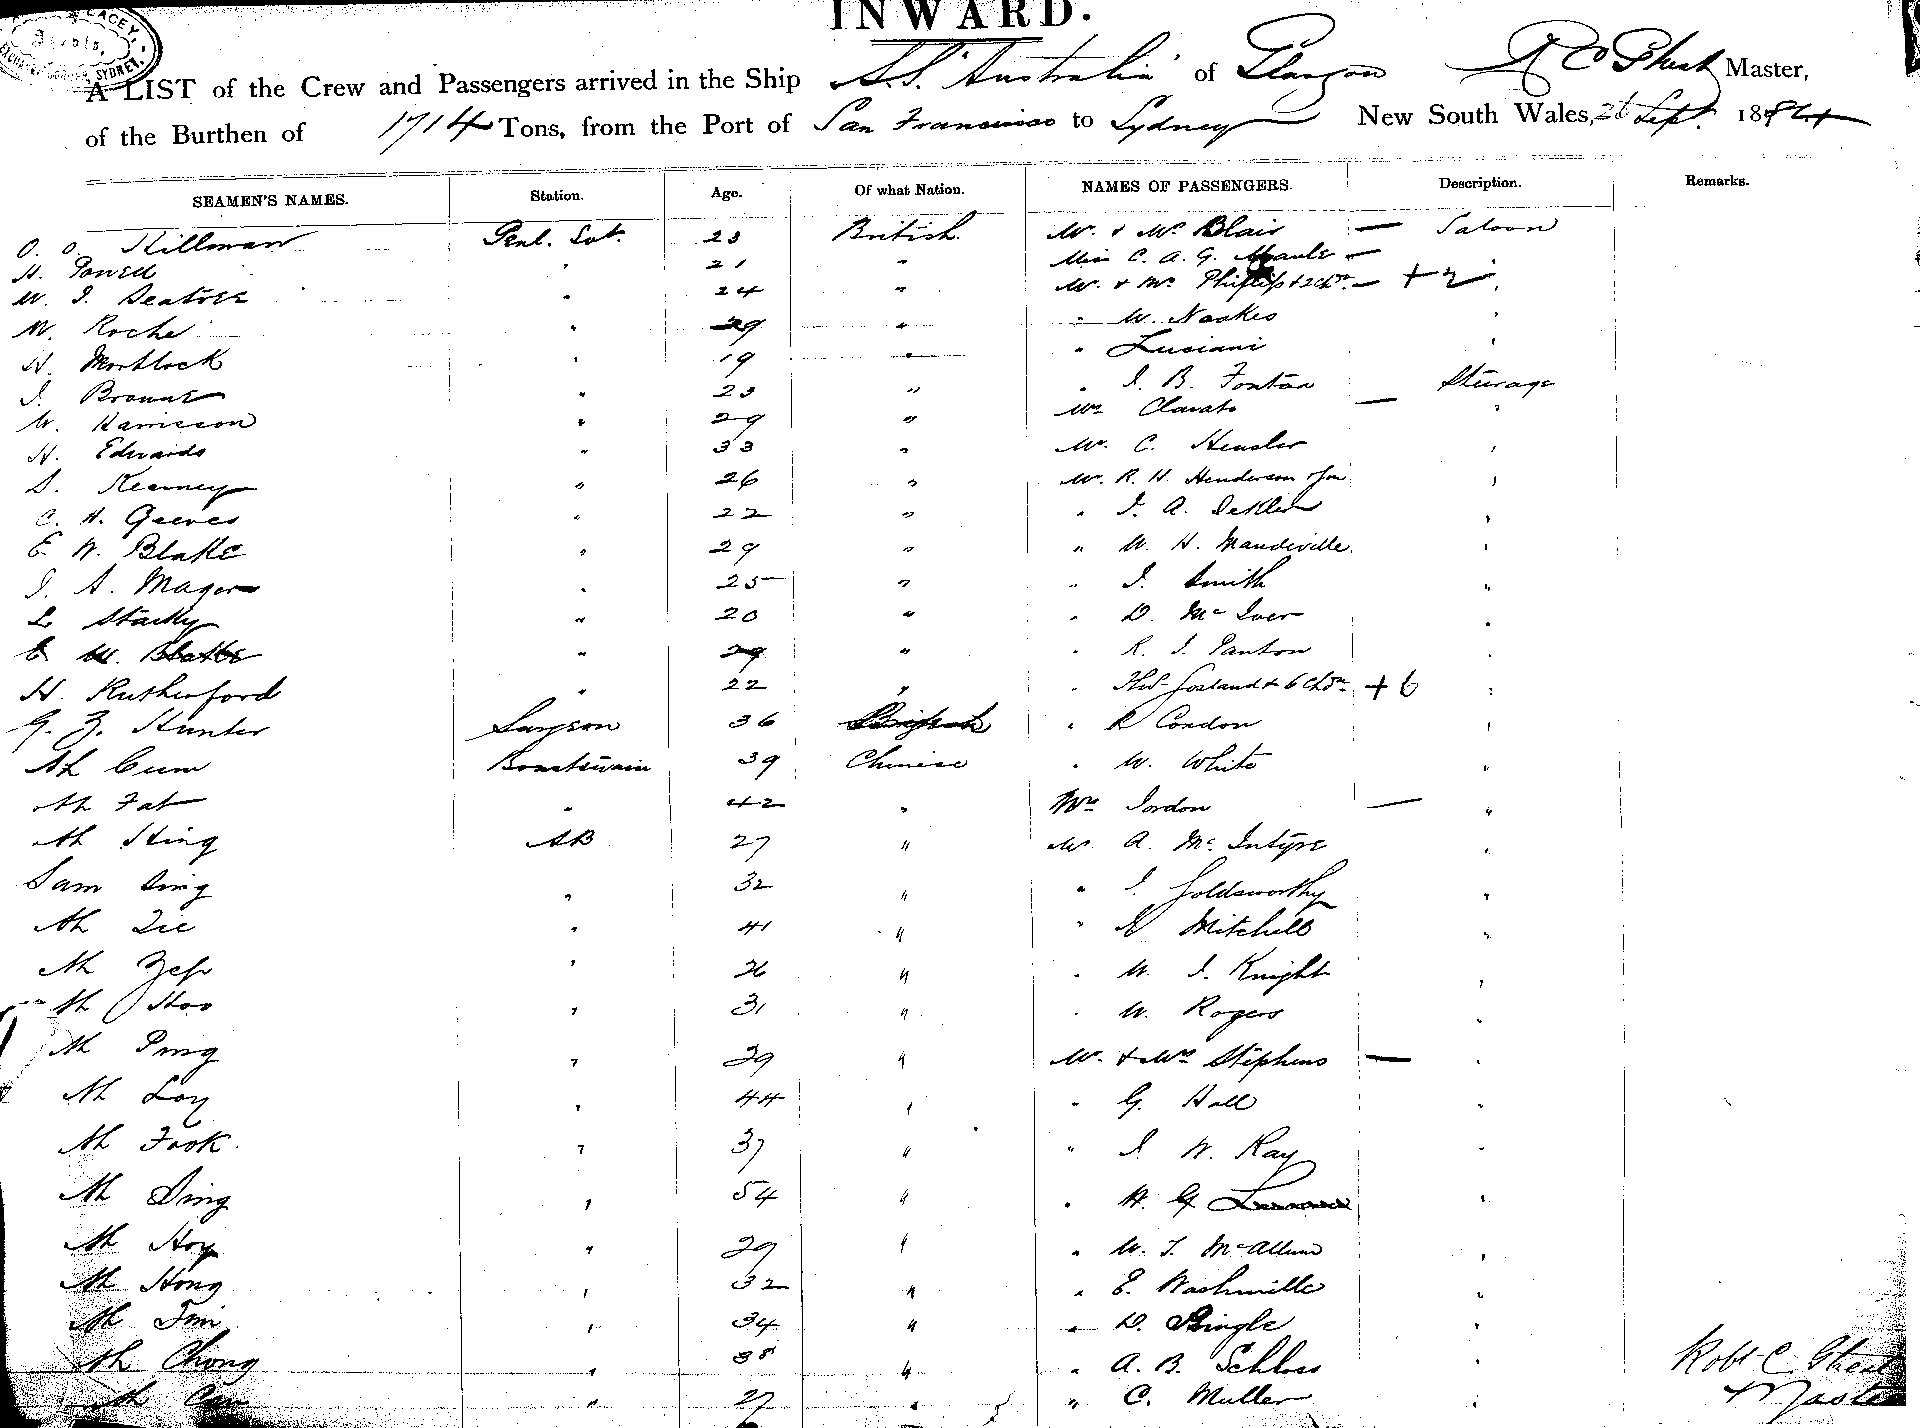 INWARD.
A LIST of the Crew and Passengers arrived in the Ship S.S. "Australia" of Glasgow Master,
of the Burthen of 1714 Tons, from the Port of San Francisco to Sydney New South Wales, 26 Sept. 1884
SEAMEN'S NAMES. Station. Age. Of what Nation. NAMES OF PASSENGERS. Description. Remarks.
23 British Mr. & Mrs Blair — Saloon
H. Powell " 21 " Miss C. A. G. —
W. J. Seatree " 24 " Mr. & Mrs Phillips & 2 Chn. — + 2 "
W. Roche " 29 " " W. Noakes "
H. Mortlock " 19 " " Luciani "
J. Browne " 23 " " J. B. Fenton Steerage
W. Harrisson " 29 " Mrs Clarato — "
H. Edwards " 33 " Mr. C. Hensler "
D. Kearney " 26 " Mr. R. H. Henderson "
C. H. Geeves " 22 " " J. A. "
E. W. Blake " 29 " " W. H. Mandeville "
J. A. Mager " 25 " " J. Smith "
L Starky " 20 " " D. McIver "
E W. Blake " 29 " " R. J. Panton "
H. Rutherford " 22 " " & 6 Chdn + 6 "
G. F. Hunter Surgeon 36 British " R Condon "
Ah Cum Boatswain 39 Chinese " W. White "
Ah Fat " 42 " Mrs Jordon — "
Ah Hing AB 27 " Mr. A. McIntyre "
Sam Sing " 32 " " J. Goldsworthy "
Ah Tie " 41 " " Mitchell "
Ah Yep " 26 " " W. J. Knight "
Ah Hoo " 31 " " W. Rogers "
Ah Ping " 29 " Mr. & Mrs Stephens — "
Ah Loy " 44 " " G. Hall "
Ah Fook " 37 " " J. W. Kay "
Ah Sing " 54 " " H. G "
Ah Hoy " 29 " " W. T. McAllum "
Ah Hong " 32 " " E. Washville "
Ah Jim " 34 " " D. Pringle "
Ah Chong " 38 " " A. B. Schloss " Robt C Ghest
Ah Can " 27 " " C. Muller " Master